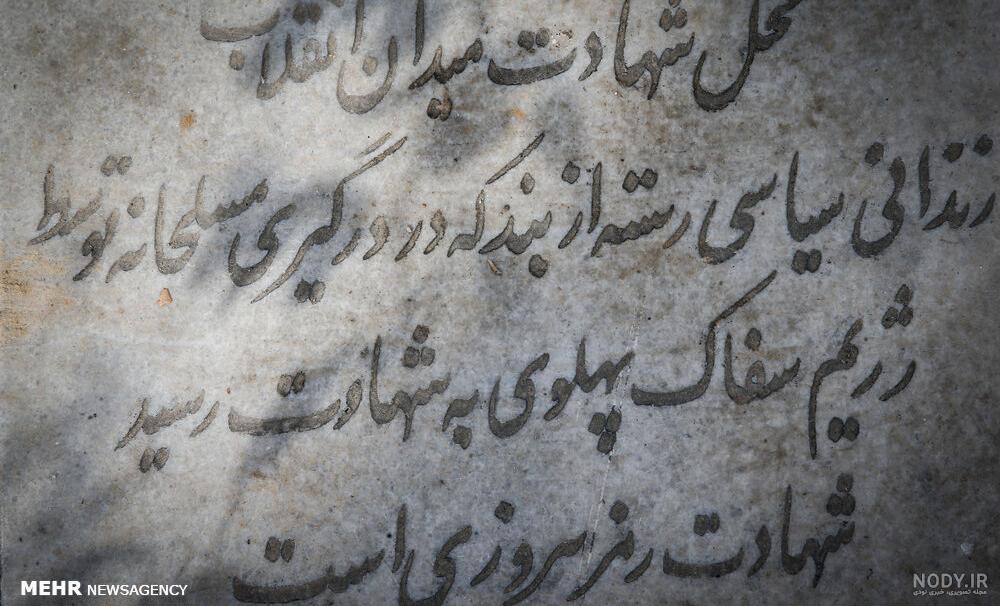 محل شهادت میدان انقلاب
زندانی سیاسی رسته از بند که در درگیری مسلحانه توسط
رژیم سفاک پهلوی به شهادت رسید
شهادت رمز پیروزی است
MEHR NEWSAGENCY
NODY.IR
مجله تصویری، خبری نودی